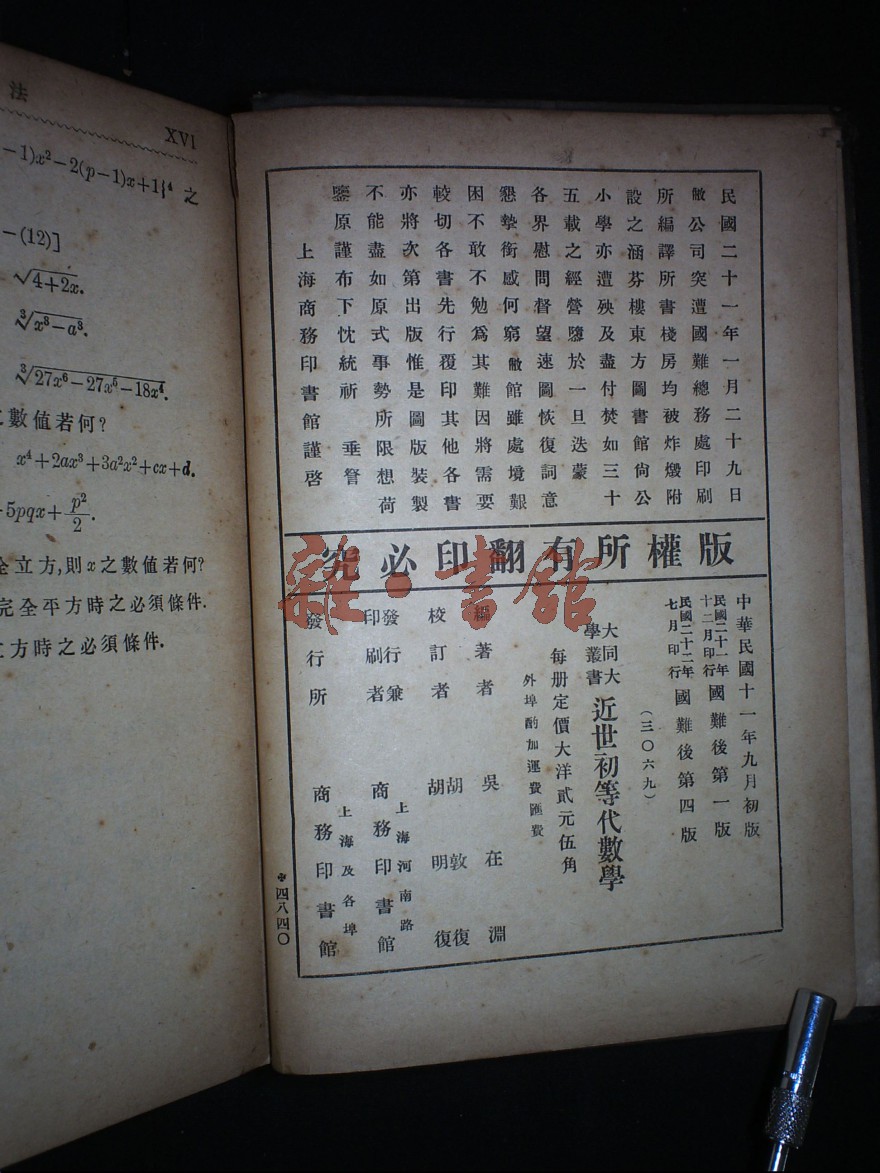 法
XVI
-1)x²-2(p-1)x+1}⁴ 之
-(12)]
√4+2x.
∛x³-a³.
∛27x⁶-27x⁵-18x⁴.
之數值若何?
x⁴+2ax³+3a²x²+cx+d.
5pqx+p²/2.
全立方,則x之數值若何?
完全平方時之必須條件.
立方時之必須條件.
民國二十一年一月二十九日
敝公司突遭國難總務處印刷
所編譯所書棧房均被炸燬附
設之涵芬樓東方圖書館尙公
小學亦遭殃及盡付焚如三十
五載之經營墮於一旦迭蒙
各界慰問督望速圖恢復詞意
懇摯銜感何窮敝館雖處境艱
困不敢不勉爲其難因將需要
較切各書先行覆印其他各書
亦將次第出版惟是圖版裝製
不能盡如原式事勢所限想荷
鑒原謹布下忱統祈 垂詧
上海商務印書館謹啓
版權所有翻印必究
中華民國十一年九月初版
民國二十一年十二月印行國難後第一版
民國二十二年七月印行國難後第四版
(三〇六九)
大同大學叢書 近世初等代數學
每册定價大洋貳元伍角
外埠酌加運費匯費
編著者 吳在淵
校訂者 胡敦復 胡明復
發行兼印刷者 上海河南路 商務印書館
發行所 上海及各埠 商務印書館
四八四〇
雜·書館